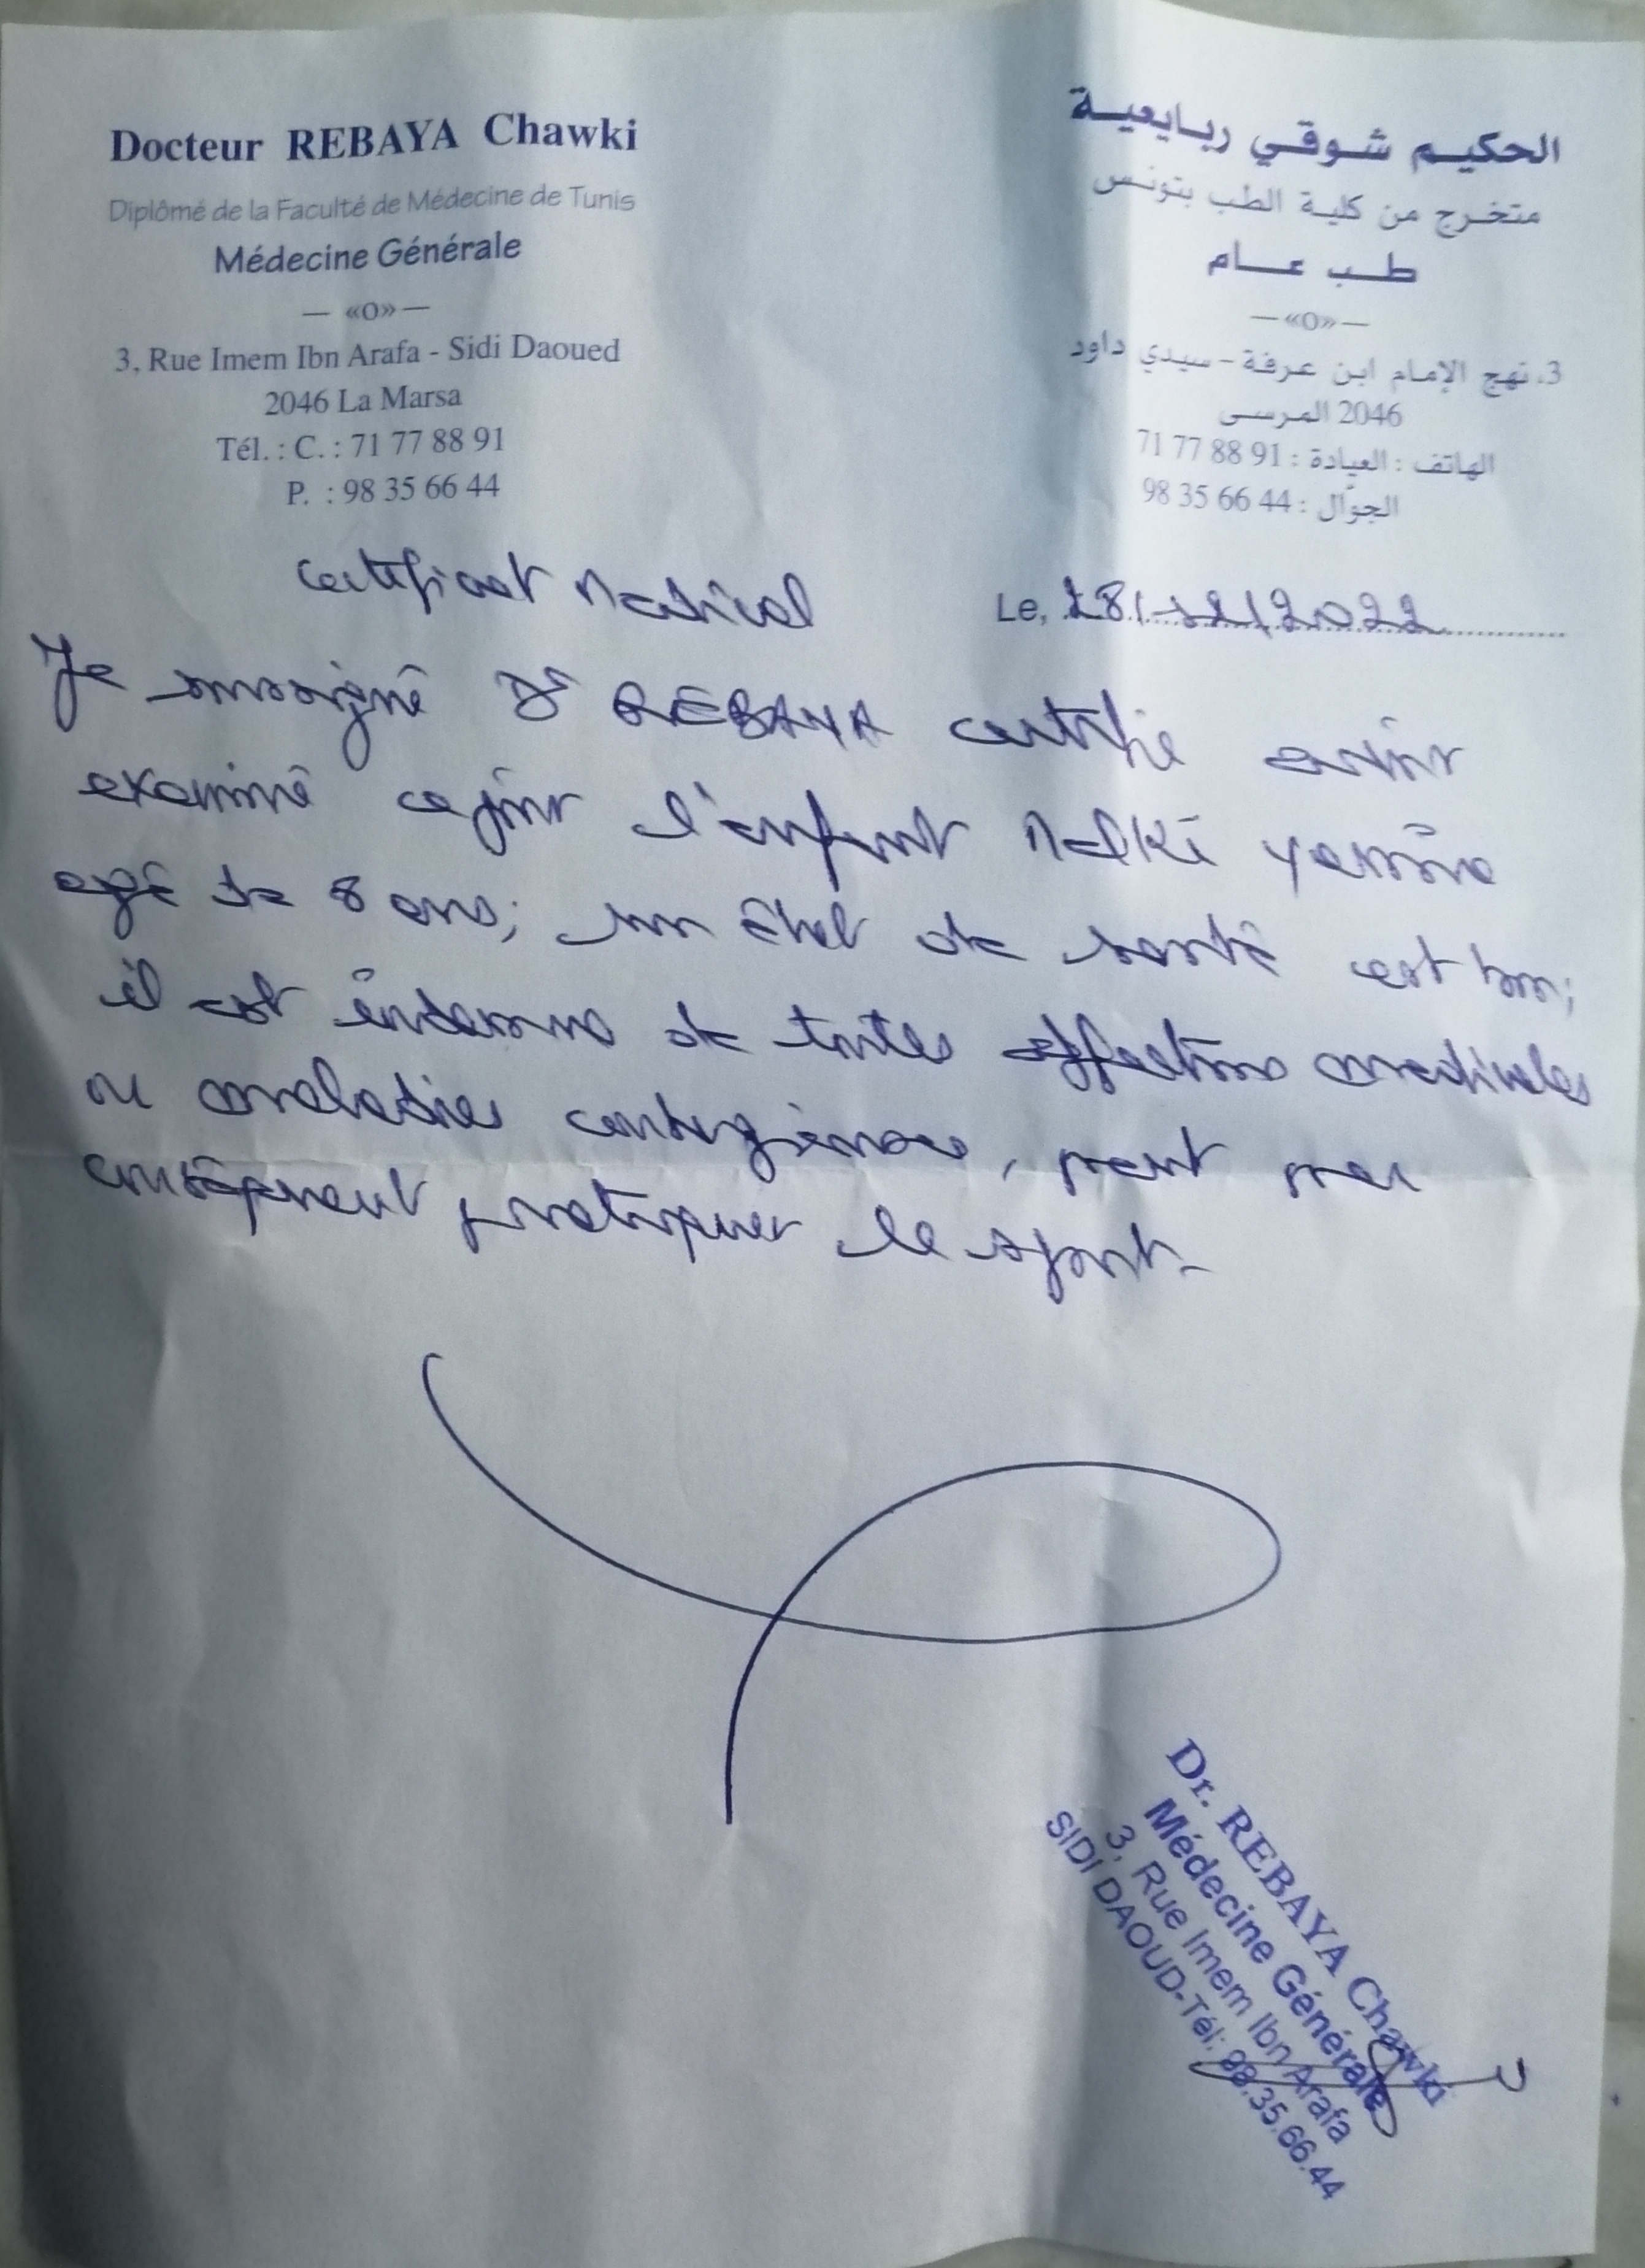 Docteur REBAYA Chawki
Diplômé de la Faculté de Médecine de Tunis
Médecine Générale
— «O» —
3, Rue Imem Ibn Arafa - Sidi Daoued
2046 La Marsa
Tél. : C. : 71 77 88 91
P. : 98 35 66 44
الحكيم شوقي ربايعية
متخرج من كلية الطب بتونس
طب عام
— «O» —
3، نهج الإمام ابن عرفة - سيدي داود
2046 المرسى
الهاتف : العيادة : 71 77 88 91
الجوّال : 98 35 66 44
Certificat Medical
Le, /12/2022
Je soussigné Dr REBAYA certifie avoir
examiné ce jour l'enfant
agé de 8 ans; son état de santé est bon;
il est indemne de toutes affections medicales
ou maladies contagieuses, peut par
conséquent pratiquer le sport.
Dr. REBAYA Chawki
Médecine Générale
3, Rue Imem Ibn Arafa
SIDI DAOUD-Tél: 98.35.66.44